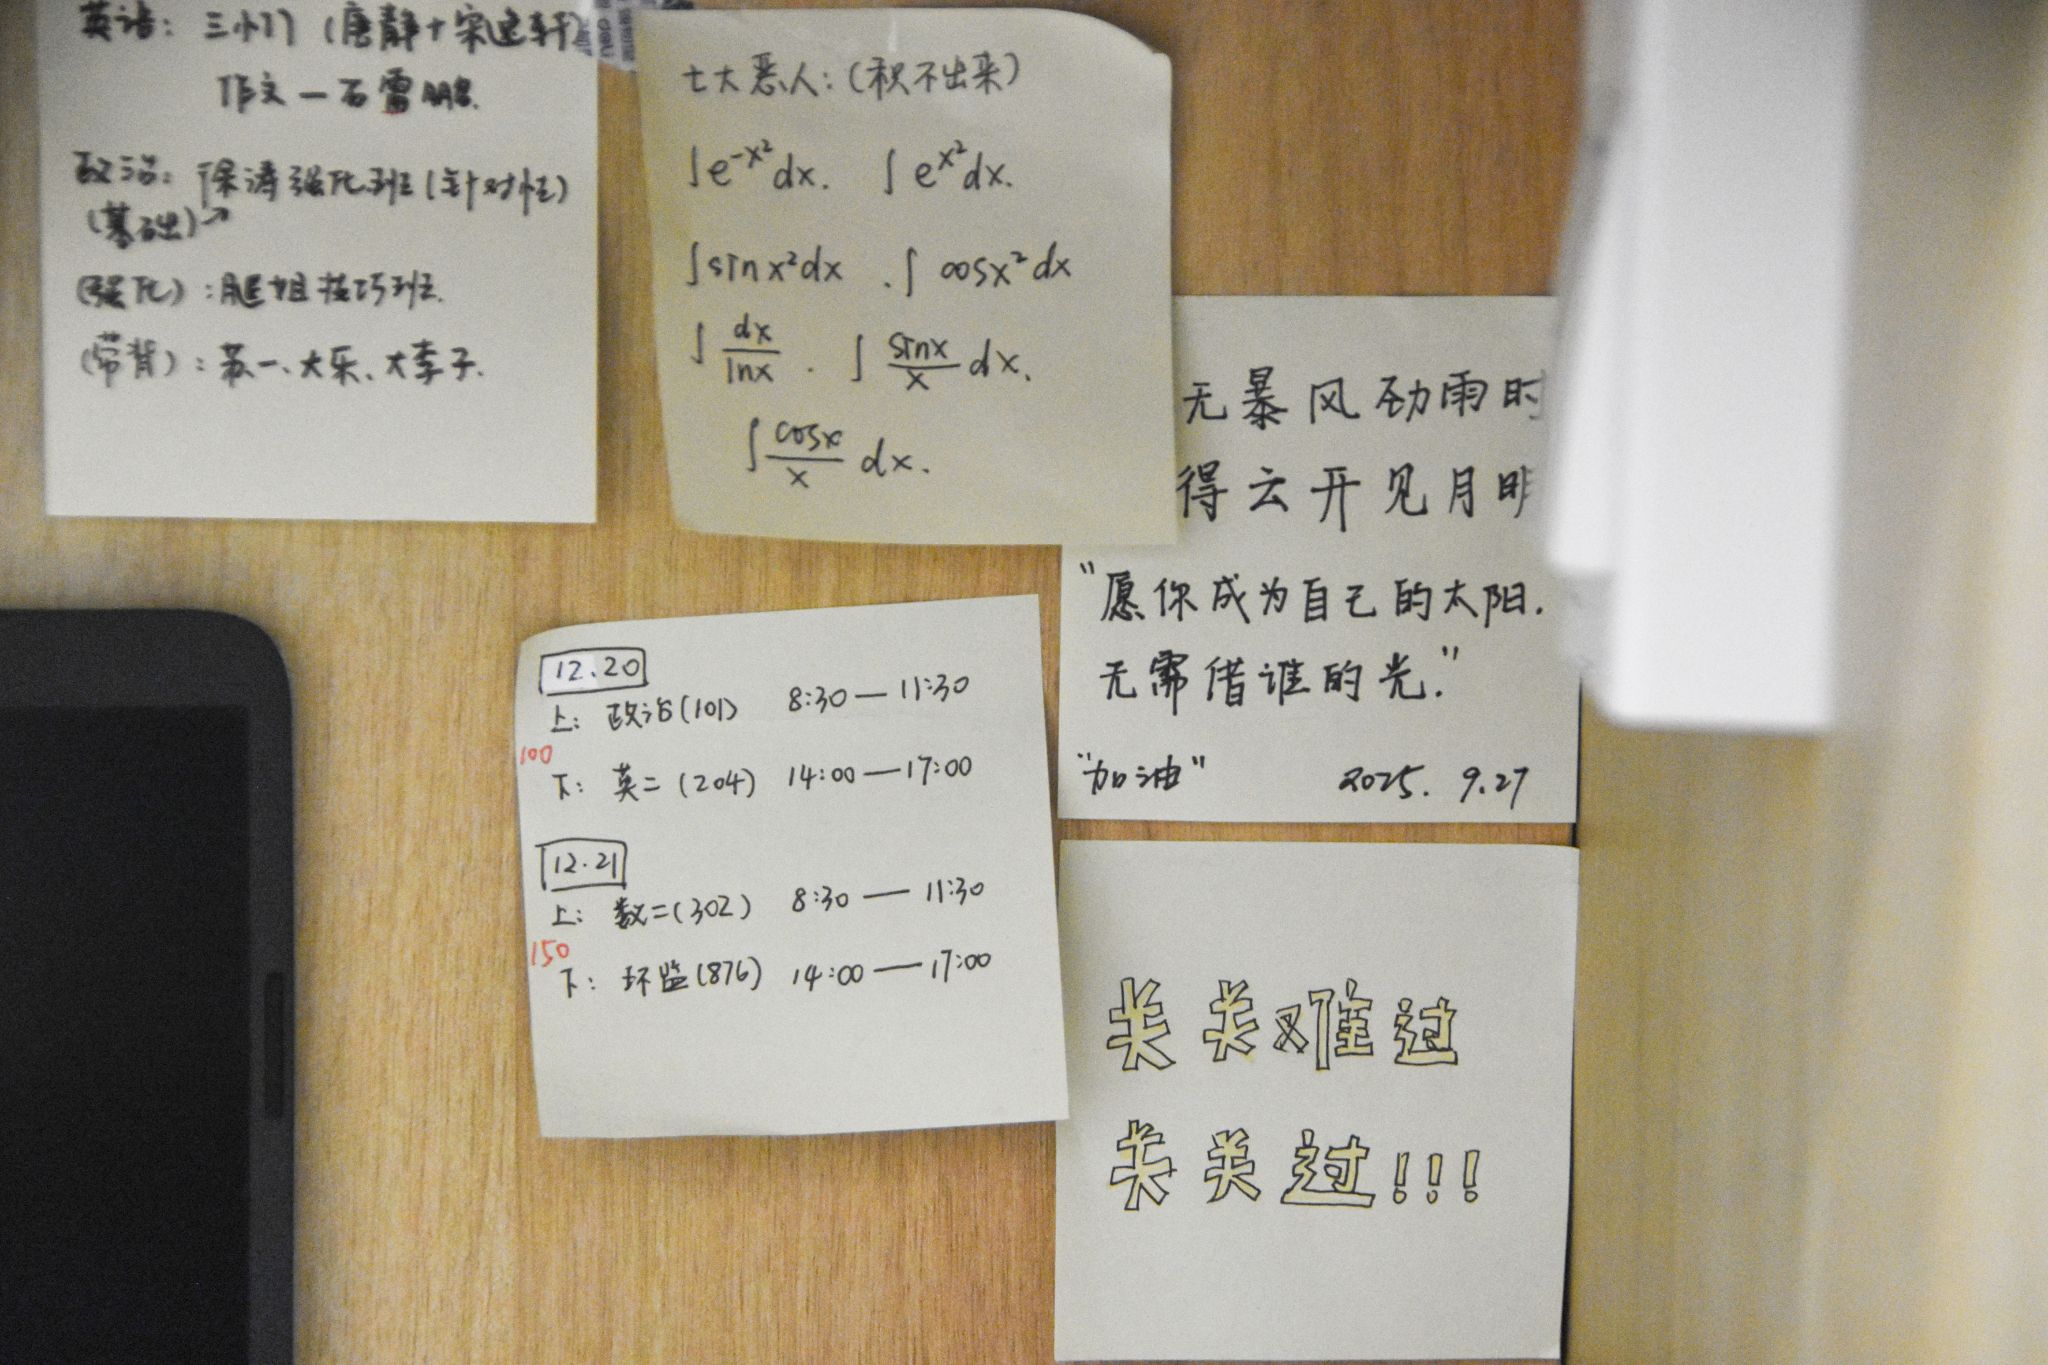 英语：三小门（唐静+宋逸轩）
作文—石雷鹏.
政治：徐涛强化班（针对性）
（基础）→
（强化）：腿姐技巧班.
（带背）：苏一、大乐、大李子.
七大恶人：（积不出来）
∫e^{-x²}dx. ∫e^{x²}dx.
∫sinx²dx . ∫cosx²dx
∫dx/lnx . ∫sinx/x dx.
∫cosx/x dx.
无暴风劲雨时
得云开见月明
"愿你成为自己的太阳.
无需借谁的光."
"加油" 2025. 9.27
12.20
上：政治(101) 8:30—11:30
100
下：英二(204) 14:00—17:00
12.21
上：数二(302) 8:30—11:30
150
下：环监(876) 14:00—17:00
关关难过
关关过!!!